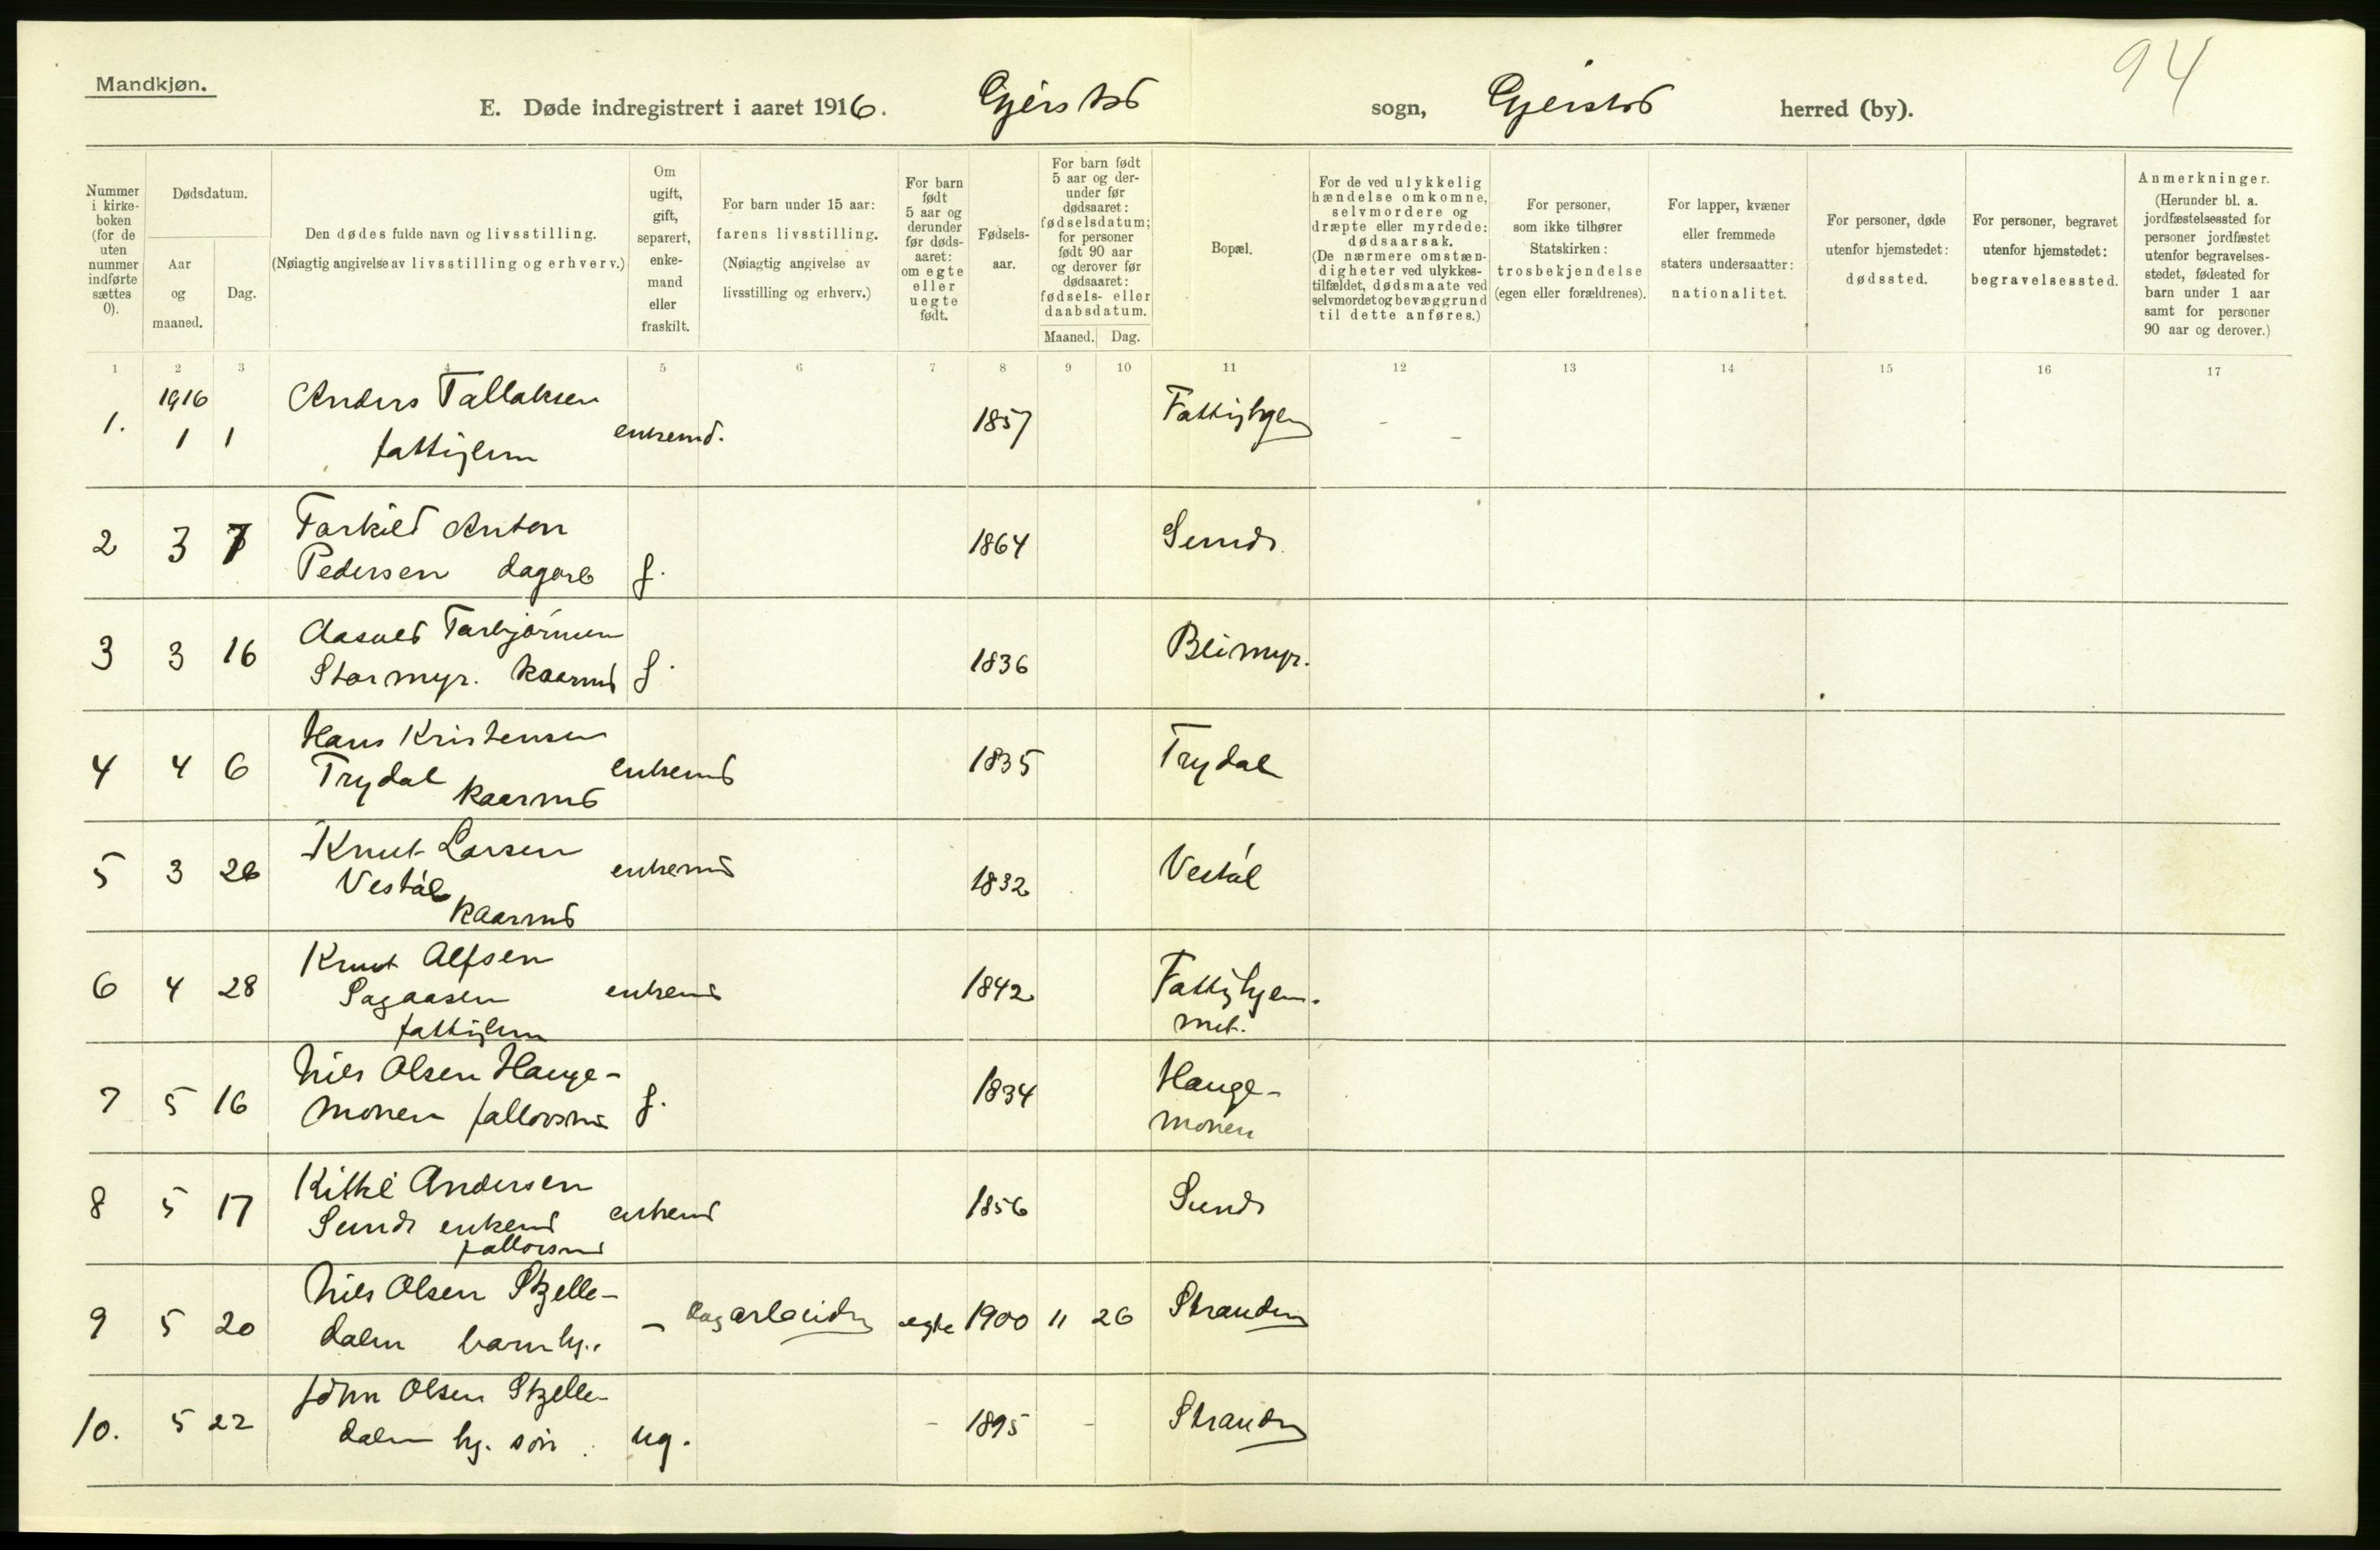 Mandkjøn.
94
E. Døde indregistrert i aaret 1916. Gjerstad sogn, Gjerstad herred (by).
Nummer i kirke-boken (for de uten nummer indførte sættes 0).
Dødsdatum.
Aar og maaned.
Dag.
Den dødes fulde navn og livsstilling.
(Nøiagtig angivelse av livsstilling og erhverv.)
Om ugift, gift, separert, enke-mand eller fraskilt.
For barn under 15 aar: farens livsstilling.
(Nøiagtig angivelse av livsstilling og erhverv.)
For barn født 5 aar og derunder før døds-aaret: om egte eller uegte født.
Fødsels-aar.
For barn født 5 aar og der-under før dødsaaret: fødselsdatum; for personer født 90 aar og derover før dødsaaret: fødsels- eller daabsdatum.
Maaned. Dag.
Bopæl.
For de ved ulykkelig hændelse omkomne, selvmordere og dræpte eller myrdede: dødsaarsak.
(De nærmere omstæn-digheter ved ulykkes-tilfældet, dødsmaate ved selvmordet og bevæggrund til dette anføres.)
For personer, som ikke tilhører Statskirken: trosbekjendelse (egen eller forældrenes).
For lapper, kvæner eller fremmede staters undersaatter: nationalitet.
For personer, døde utenfor hjemstedet: dødssted.
For personer, begravet utenfor hjemstedet: begravelsessted.
Anmerkninger.
(Herunder bl. a. jordfæstelsessted for personer jordfæstet utenfor begravelses-stedet, fødested for barn under 1 aar samt for personer 90 aar og derover.)
1 2 3 4 5 6 7 8 9 10 11 12 13 14 15 16 17
1916
1. 1 1 Anders Tallaksen enkemd. 1857 Fattighjem
fattiglem
2 3 7 Tarkild Anton 1864 Sunde
Pedersen dagarb g.
3 3 16 Aasuld Tarbjørnsen 1836 Bleimyr.
Stormyr. kaarmd g.
4 4 6 Hans Kristensen enkemd 1835 Trydal
Trydal kaarmd
5 3 26 Knut Larsen enkemd 1832 Vestøl
Vestøl
kaarmd
6 4 28 Knut Alfsen enkemd 1842 Fattighjem-
Sagaasen met.
fattiglem
7 5 16 Nils Olsen Hauge- g. 1834 Hauge-
monen fallorsmd monen
8 5 17 Kittil Andersen enkemd 1856 Sunde
Sunde enkemd
fallorsmd
9 5 20 Nils Olsen Skjelle- – dagarbeider egte 1900 11 26 Stranden
dalen barn hj.
10. 5 22 John Olsen Skjelle- ug. – 1895 – Stranden
dalen hj. søn.